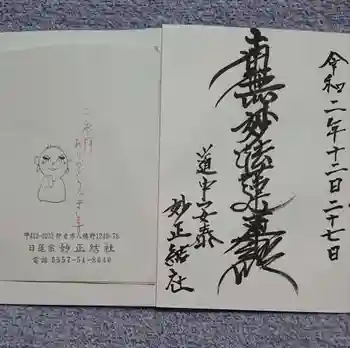 令和二年十二月二十七日
南無妙法蓮華経
道中安泰
妙正結社
ご参拝
ありがとうございます
伊東市八幡野
日蓮宗 妙正結社
電話